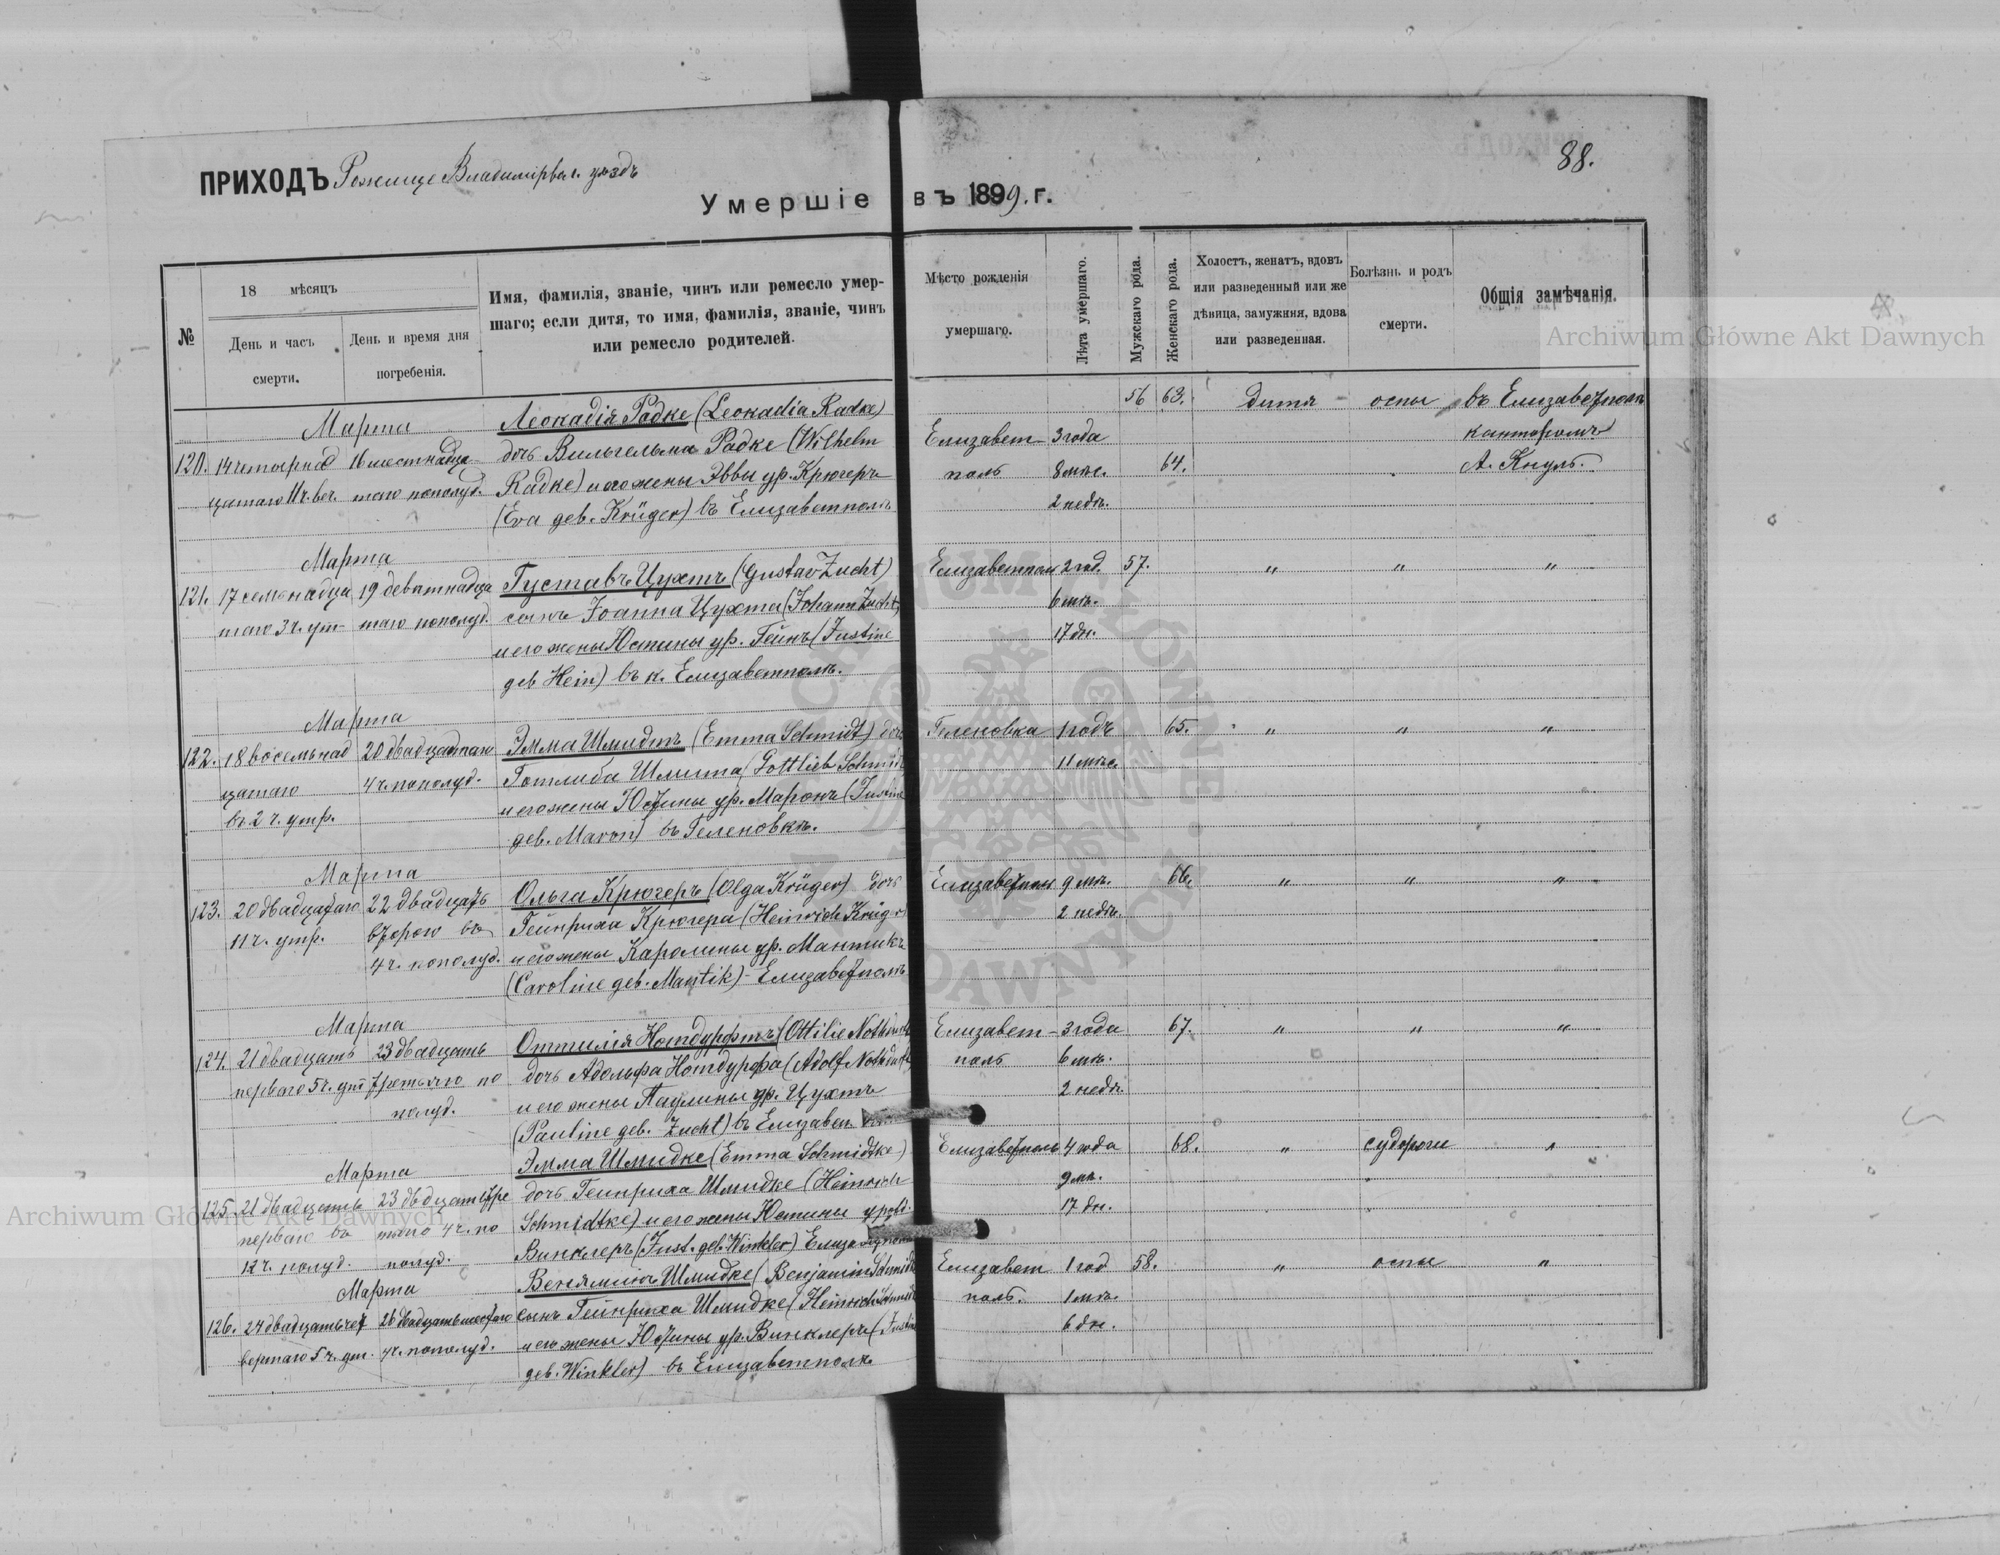 88.
ПРИХОДЪ Рожище Владимірвол. уѣздъ
Умершіе въ 1899. г.
№
18 мѣсяцъ
День и часъ смерти.
День и время дня погребенія.
Имя, фамилія, званіе, чинъ или ремесло умер-
шаго; если дитя, то имя, фамилія, званіе, чинъ
или ремесло родителей.
Мѣсто рожденія
умершаго.
Лѣта умершаго.
Мужскаго рода.
Женскаго рода.
Холостъ, женатъ, вдовъ
или разведенный или же
дѣвица, замужняя, вдова
или разведенная.
Болѣзнь и родъ
смерти.
Общія замѣчанія.
56 63. дитя оспы въ Елизаветполѣ
Марта Леокадія Радке (Leokadia Radke)
120. 14 четырнад 16 шестнадца дочь Вильгельма Радке (Wilhelm Елизавет- 3 года канторомъ
цатаго 11 ч. веч. таго пополуд. Radke) и его жены Эввы ур. Крюгеръ поль 8 мѣс. 64. А. Кнуль.
(Eva geb. Krüger) въ Елизаветполѣ 2 недѣ.
Марта
121. 17 семьнадца 19 девятнадца Густавъ Цухтъ (Gustav Zucht) Елизаветпол 2 год. 57. " " "
таго 3 ч. ут- таго пополуд. сынъ Іоанна Цухта (Johann Zucht) 6 мѣ.
и его жены Юстины ур. Гейнъ (Justine 17 дн.
geb Hein) въ к. Елизаветполѣ.
Марта
122. 18 восемьнад 20 двадцатаго Эмма Шмидтъ (Emma Schmidt) доч Геленовка 1 годъ 65. " " "
цатаго 4 ч. пополуд. Готлиба Шмита (Gottlieb Schmid 11 мѣс.
въ 2 ч. утр. и его жены Юстины ур. Маронъ (Justine
geb. Maron) въ Геленовкѣ.
Марта
123. 20 двадцатаго 22 двадцать Ольга Крюгеръ (Olga Krüger) дочь Елизаветпол 9 мѣ. 66. " " "
11 ч. утр. второго въ Гейнриха Крюгера (Heinrich Krüger 2 недѣ.
4 ч. пополуд. и его жены Каролины ур. Мантикъ
(Caroline geb. Mantik) - Елизаветполѣ
Марта
124. 21 двадцать 23 двадцать Оттилія Нотдурфтъ (Ottilie Nothdurft Елизавет- 3 года 67. " " "
перваго 5 ч. ут третьяго по дочь Адольфа Нотдурфа (Adolf Nothdurft поль 6 мѣ.
полуд. и его жены Паулины ур. Цухтъ 2 недѣ.
(Pauline geb. Zucht) въ Елизавет
Марта Эмма Шмидке (Emma Schmidtke) Елизаветполь 4 года 68. " судороги "
125. 21 двадцать 23 двадцатьтре дочь Гейнриха Шмидке (Heinrich 9 мѣ.
перваго въ тьяго 4 ч. по Schmidtke) и его жены Юстины урожд. 17 дн.
12 ч. полуд. полуд. Винклеръ (Just. geb. Winkler)
Марта Веніаминъ Шмидке (Benjamin Schmidt Елизавет 1 год 58. " оспы "
126. 24 двадцатьчет 26 двадцатьшестого сынъ Гейнриха Шмидке (Heinrich Schmidt поль. 1 мѣ.
вертаго 5 ч. ут. 4 ч. пополуд. и его жены Юстины ур. Винклеръ (Justine 6 дн.
geb. Winkler) въ Елизаветполѣ
Archiwum Główne Akt Dawnych
Archiwum Główne Akt Dawnych